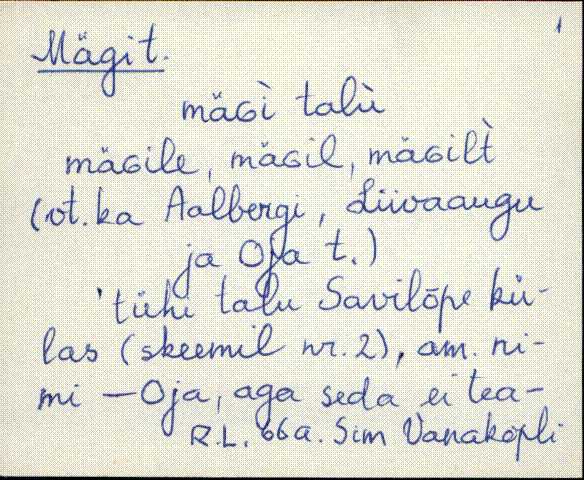 1
Mägi t.
mäGì talù
mäGile, mäGil, mäGilt̀
(vt. ka Aalbergi, Liivaaugu
ja Oja t.)
'tühi talu Savilõpe kü-
las (skeemil nr. 2), am. ni-
mi — Oja, aga seda ei tea-
R.L. 66 a. Sim Vanakopli